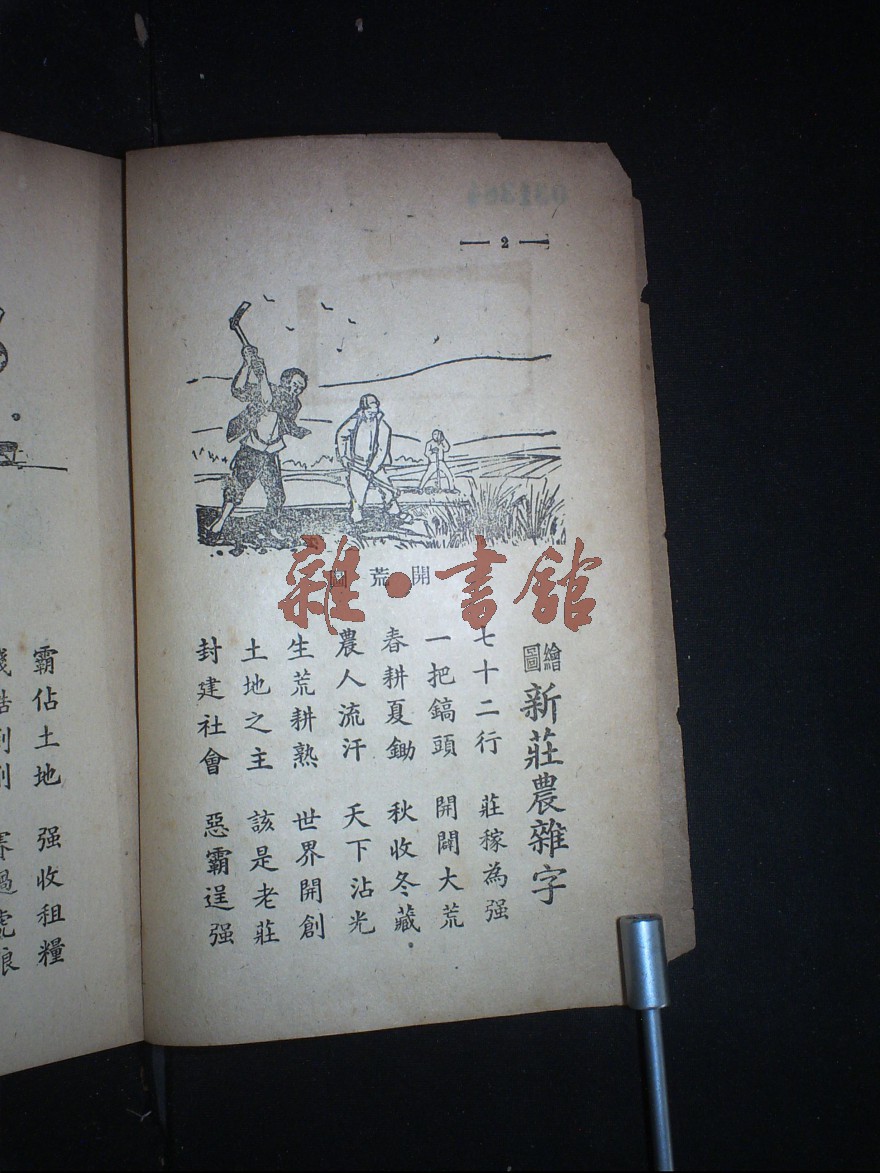 — 2 —
開荒圖
繪圖
新莊農雜字
七十二行 莊稼為强
一把鎬頭 開闢大荒
春耕夏鋤 秋收冬藏。
農人流汗 天下沾光
生荒耕熟 世界開創
土地之主 該是老莊
封建社會 惡霸逞强
霸佔土地 强收租糧
雜·書館